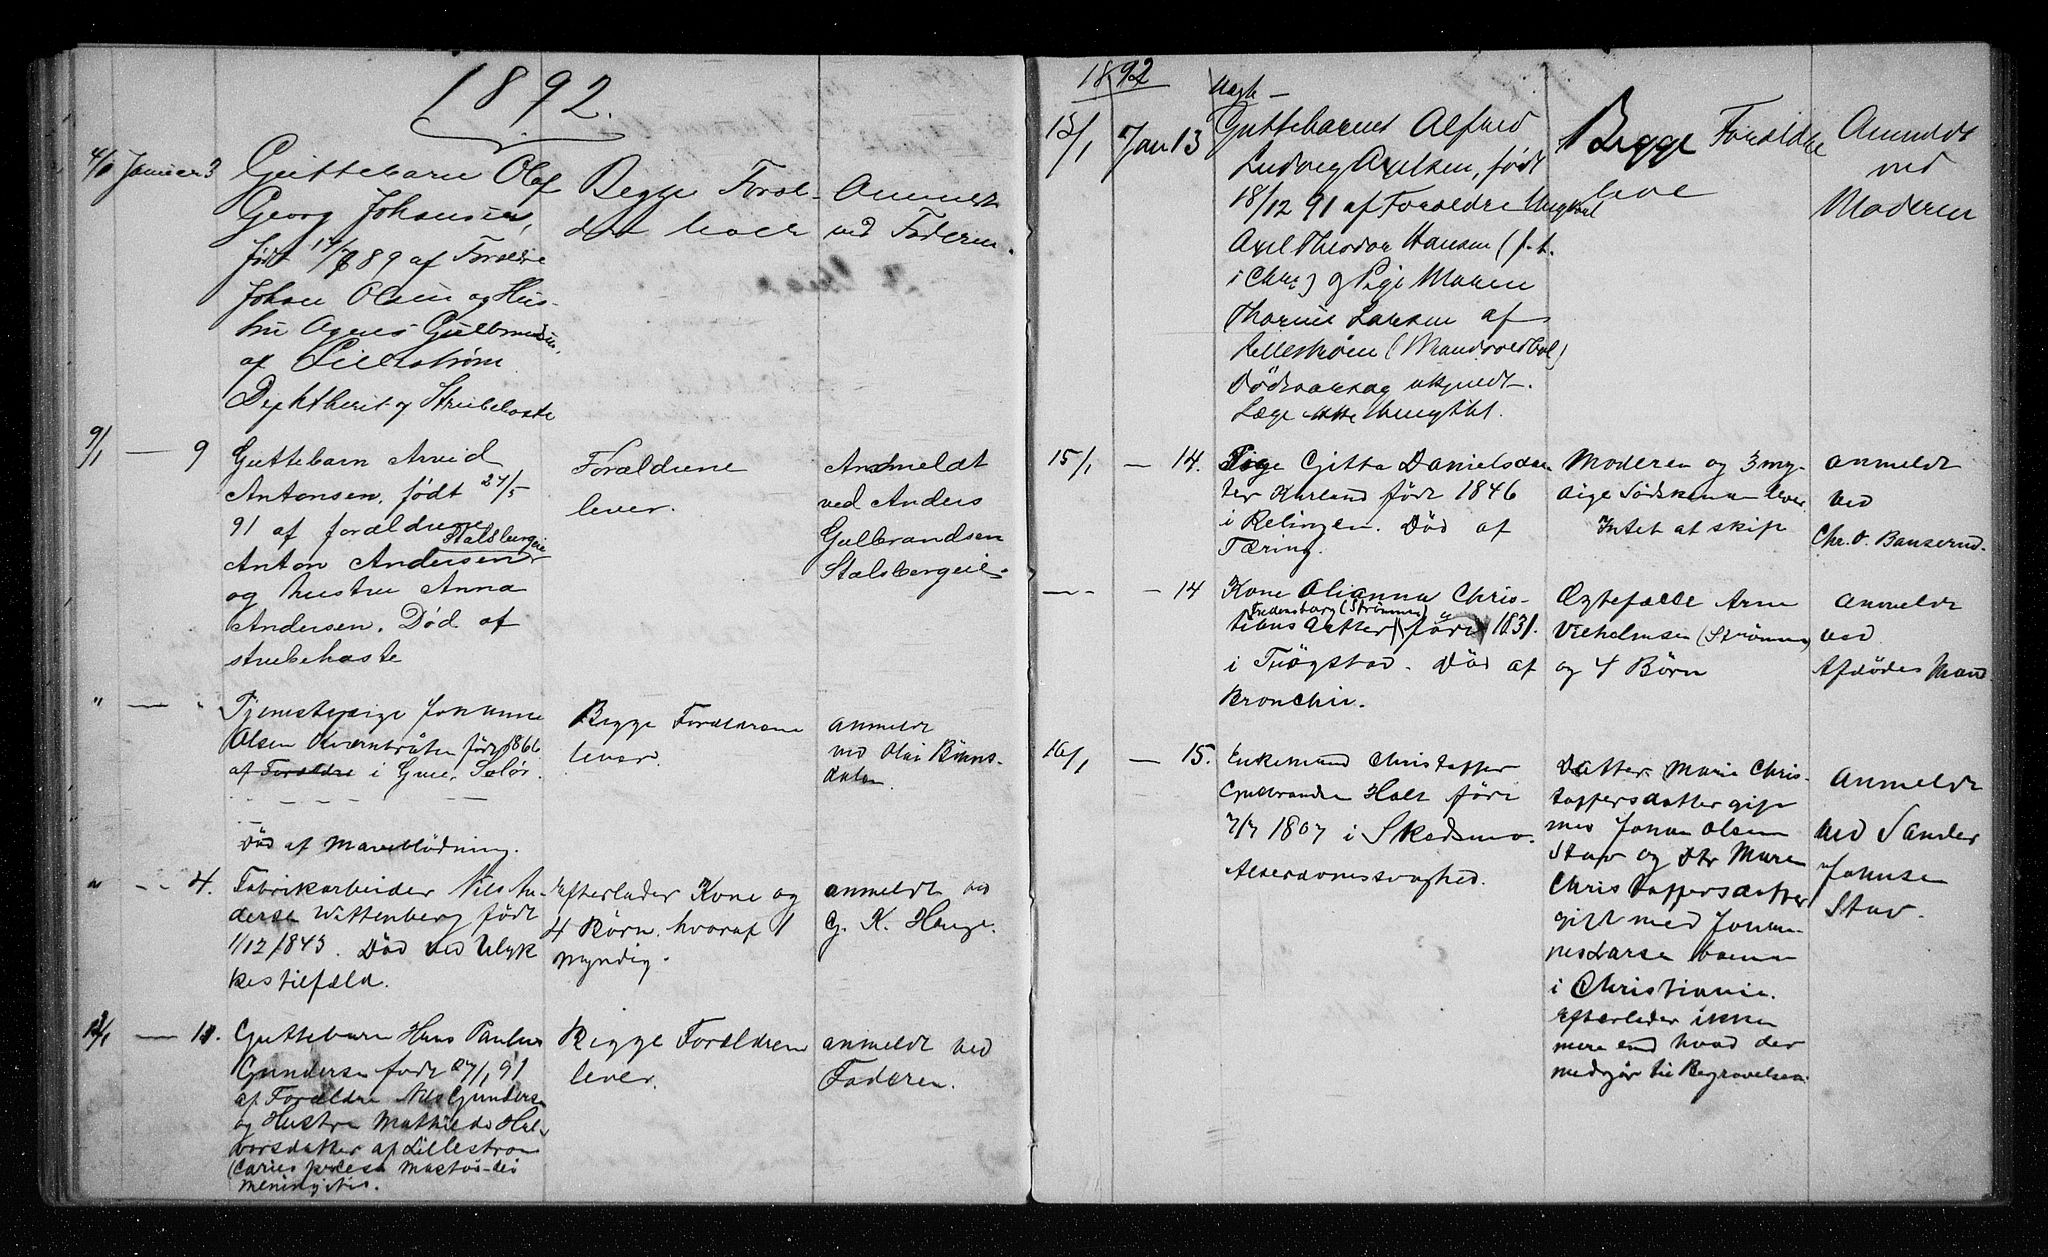 1892.
4/1 Januar 3
Guttebarn Olaf
Georg Johansen,
født 89 af Forældre
Johan Olsen og Hus-
tru Agnes Gulbrandsen,
af Lillestrøm
Dyphtherit og Strubehoste
Begge Foræl-
dre
Anmeldt
ved Faderen.
9/1 — 9
Guttebarn Arvid
Antonsen, født 24/5
91 af forældrene
Stalsbergeie
Anton Andersen
og hustru Anna
Andersen. Død af
strubehoste
Forældrene
lever.
Anmeldt
ved Anders
Gulbrandsen
Stalsbergeie.
" — "
Tjenestepige Johanne
Olsen Kværnbråten født 1866
af Forældre i Grue, Solør.
Død af Maveblødning.
Begge Forældrene
lever.
anmeldt
ved Olai
dalen
" -- 4.
Fabrikarbeider Nils An-
dersen Wittenberg født
1/12 1843. Død ved Ulyk
kestilfæld.
Efterlader Kone og
4 Børn, hvoraf 1
myndig.
anmeldt ved
G. K. Hauge.
12/1 — 11.
Guttebarn Hans Paulus
Gundersen født 27/1 91
af Forældre Nils Gundersen
og Hustru Mathilde Hal-
vorsdatter af Lillestrøm
(Caries
meningitis.
Begge Forældrene
lever.
anmeldt ved
Faderen.
1892
15/1 Jan 13
Uægte —
Guttebarnet Alfred
Ludvig Axelsen, født
18/12 91 af Forældre Ungkarl
Axel Theodor Hansen (f. t.
i Chra) og Pige Maren
Thorine Larsen af
Lillestrøm
Dødsaarsag ukjendt.
Læge ikke benyttet.
Begge Forældre
leve
Anmeldt
ved
Moderen
15/1 — 14.
Pige Gitta Danielsdat
ter Kurland født 1846
i Relingen. Død af
Tæring.
Moderen og 3 my-
dige Sødskende lever
Intet at skip
anmeldt
ved
Chr. O. Banserud.
-- - 14
Kone Olianna Chris-
Fredensborg (Strømmen)
tiansdatter født 1831.
i Trøgstad. Død af
Bronchit.
Ægtefælle Arne
Vilhelmsen (Strømmen)
og 4 Børn
anmeldt
ved
Afdødes Mand
16/1 — 15.
Enkemand Christoffer
Gulbrandsen Holt født
7/7 1807 i Skedsmo.
Alderdomssvaghed.
Datter Marie Chris-
toffersdatter gift
med Johan Olsen
Stav og Dtr Maren
Christoffersdatter
gift med Johan-
nes Larsen
i Christiania.
Efterlader ikke
mere end hvad der
medgår til Begravelsen.
Anmeldt
ved Sander
Johnsen
Stav.